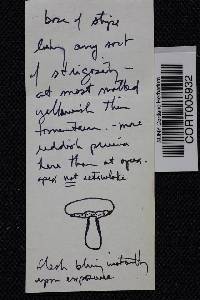 base of stipe
lacking any sort
of strigosity -
at most matted
yellowish thin
tomentum. - more
reddish pruina
here than at apex.
apex not reticulate
flesh bluing instantly
upon exposure
CORT005932